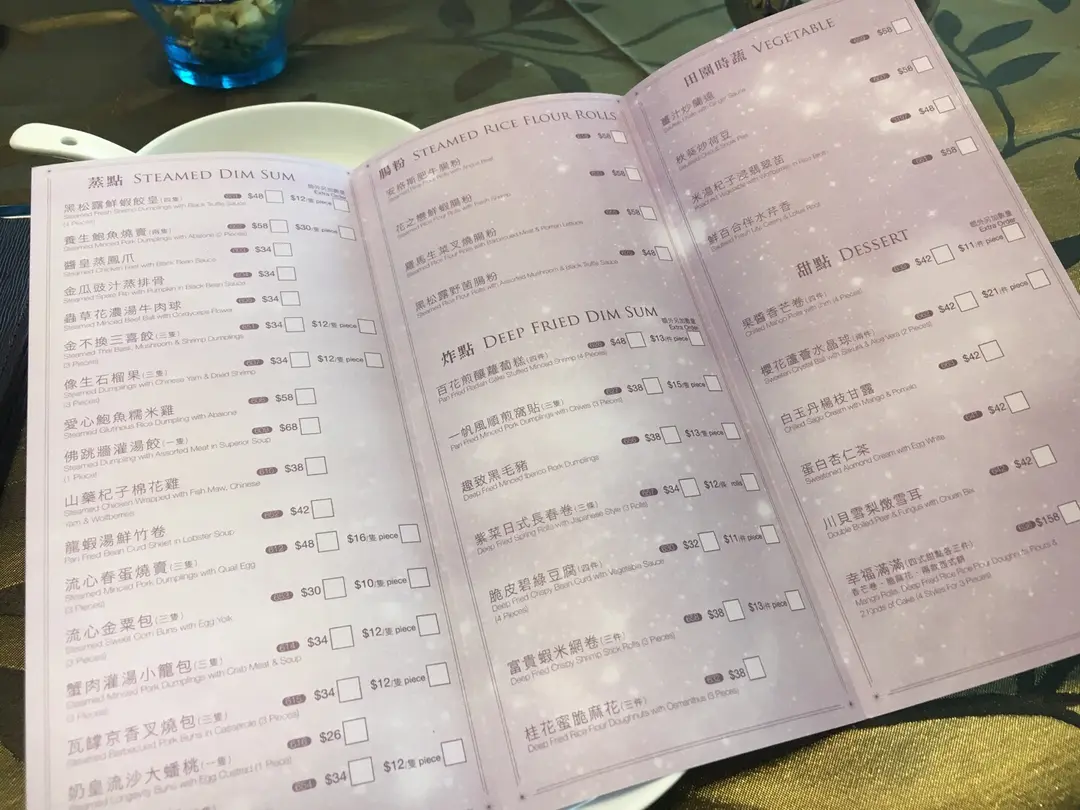 蒸點 STEAMED DIM SUM
額外另加數量
Extra Order
黑松露鮮蝦餃皇(四隻) $48 $12/隻 piece
Steamed Fresh Shrimp Dumplings with Black Truffle Sauce
(4 Pieces)
養生鮑魚燒賣(兩隻) $58 $30/隻 piece
Steamed Minced Pork Dumplings with Abalone (2 Pieces)
醬皇蒸鳳爪 $34
Steamed Chicken Feet with Black Bean Sauce
金瓜豉汁蒸排骨 $34
Steamed Spare Rib with Pumpkin in Black Bean Sauce
蟲草花濃湯牛肉球 $34
Steamed Minced Beef Ball with Cordyceps Flower
金不換三喜餃(三隻) $34 $12/隻 piece
Steamed Thai Basil, Mushroom & Shrimp Dumplings
(3 Pieces)
像生石榴果(三隻) $34 $12/隻 piece
Steamed Dumplings with Chinese Yam & Dried Shrimp
(3 Pieces)
愛心鮑魚糯米雞 $58
Steamed Glutinous Rice Dumpling with Abalone
佛跳牆灌湯餃(一隻) $68
Steamed Dumpling with Assorted Meat in Superior Soup
(1 Piece)
山藥杞子棉花雞 $38
Steamed Chicken Wrapped with Fish Maw, Chinese
Yam & Wolfberries
龍蝦湯鮮竹卷 $42
Pan Fried Bean Curd Sheet in Lobster Soup
流心春蛋燒賣(三隻) 612 $48 $16/隻 piece
Steamed Minced Pork Dumplings with Quail Egg
(3 Pieces)
流心金粟包(三隻) $30 $10/隻 piece
Steamed Sweet Corn Buns with Egg Yolk
(3 Pieces)
蟹肉灌湯小籠包(三隻) 614 $34 $12/隻 piece
Steamed Minced Pork Dumplings with Crab Meat & Soup
(3 Pieces)
瓦罉京香叉燒包(三隻) 615 $34 $12/隻 piece
Steamed Barbecued Pork Buns in Casserole (3 Pieces)
奶皇流沙大蟠桃(一隻) 616 $26
Steamed Longevity Buns with Egg Custard (1 Piece)
$34 $12/隻 piece
腸粉 STEAMED RICE FLOUR ROLLS
安格斯肥牛腸粉 $58
Steamed Rice Flour Rolls with Angus Beef
花之戀鮮蝦腸粉 $58
Steamed Rice Flour Rolls with Fresh Shrimp
羅馬生菜叉燒腸粉 $58
Steamed Rice Flour Rolls with Barbecued Meat & Roman Lettuce
黑松露野菌腸粉 $48
Steamed Rice Flour Rolls with Assorted Mushroom & Black Truffle Sauce
炸點 DEEP FRIED DIM SUM
額外另加數量
Extra Order
百花煎釀蘿蔔糕(四件) $48 $13/件 piece
Pan Fried Radish Cake Stuffed Minced Shrimp (4 Pieces)
一帆風順煎窩貼(三隻) $38 $15/隻 piece
Pan Fried Minced Pork Dumplings with Chives (3 Pieces)
趣致黑毛豬 $38 $13/隻 piece
Deep Fried Minced Iberico Pork Dumplings
紫菜日式長春卷(三條) $34 $12/條 rolls
Deep Fried Spring Rolls with Japanese Style (3 Rolls)
脆皮碧綠豆腐(四件) $32 $11/件 piece
Deep Fried Crispy Bean Curd with Vegetable Sauce
(4 Pieces)
富貴蝦米網卷(三件) $38 $13/件 piece
Deep Fried Crispy Shrimp Stick Rolls (3 Pieces)
桂花蜜脆麻花(三件) $38
Deep Fried Rice Flour Doughnuts with Osmanthus (3 Pieces)
田園時蔬 VEGETABLE
薑汁炒蘭遠 $58
Ginger Sauce
秋葵炒荷豆 $58
米湯杞子浸翡翠苗 $48
鮮百合伴水芹香 $58
甜點 DESSERT
額外另加數量
Extra Order
果醬香芒卷(四件) $42 $11/件 piece
Chilled Mango Rolls with Jam (4 Pieces)
櫻花蘆薈水晶球(兩件) $42 $21/件 piece
Sweeten Crystal Ball with Sakura & Aloe Vera (2 Pieces)
白玉丹楊枝甘露 $42
Chilled Sago Cream with Mango & Pomelo
蛋白杏仁茶 $42
Sweetened Almond Cream with Egg White
川貝雪梨燉雪耳 $42
Double Boiled Pear & Fungus with Chuan Bei
幸福滿滿(四式甜點各三件) $158
香芒卷、脆麻花、兩款西式餅
Mango Rolls, Deep Fried Rice Flour Doughnuts Flours &
2 Kinds of Cake (4 Styles For 3 Pieces)